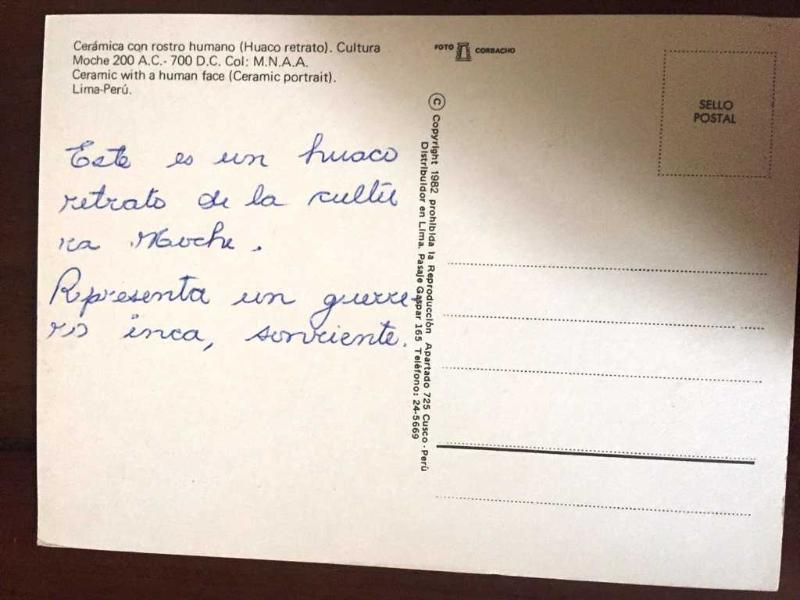 Cerámica con rostro humano (Huaco retrato). Cultura
Moche 200 A.C.- 700 D.C. Col: M.N.A.A.
Ceramic with a human face (Ceramic portrait).
Lima-Perú.
FOTO CORBACHO
SELLO
POSTAL
Este es un huaco
retrato de la cultu
ra Moche.
Representa un guerre
ro inca, sonriente.
© Copyright 1982 prohibida la Reproducción Apartado 725 Cusco - Perú
Distribuidor en Lima. Pasaje Gaspar 165 Teléfono: 24-5669